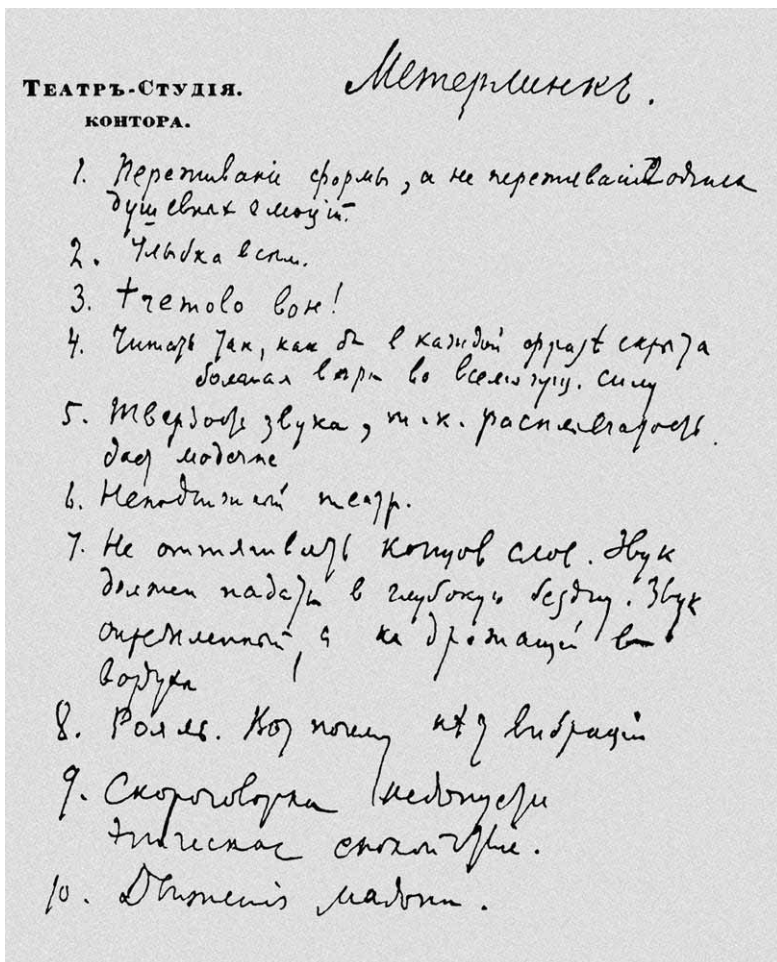 Театръ-Студія.
контора.
Метерлинкъ.
1. Переживаніе формы, а не переживаніе одних
душевных эмоцій.
2. Улыбка всѣм.
3. Tremolo вон!
4. Читать так, как бы в каждой фразѣ скрыта
большая вѣра во всемогущ. силу
5. Твердость звука, т.к. расплывчатость
дает moderne
6. Неподвижный театр.
7. Не оттягивать концов слов. Звук
должен падать в глубокую бездну. Звук
опредѣленный, а не дрожащій в
воздухѣ
8. Рояль. Вот почему нѣт вибраціи
9. Скороговорка недопустима
Эпическое спокойствіе.
10. Движенія мадонн.